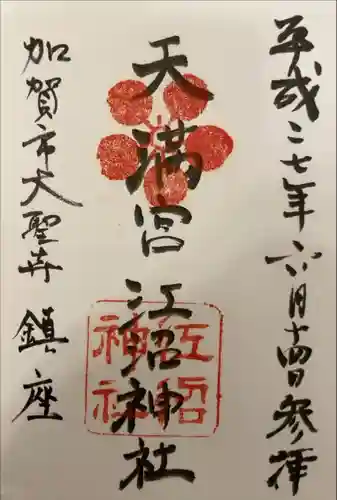 平成二七年六月十四日参拝
天満宮
江沼神社
江沼
神社
加賀市大聖寺 鎮座